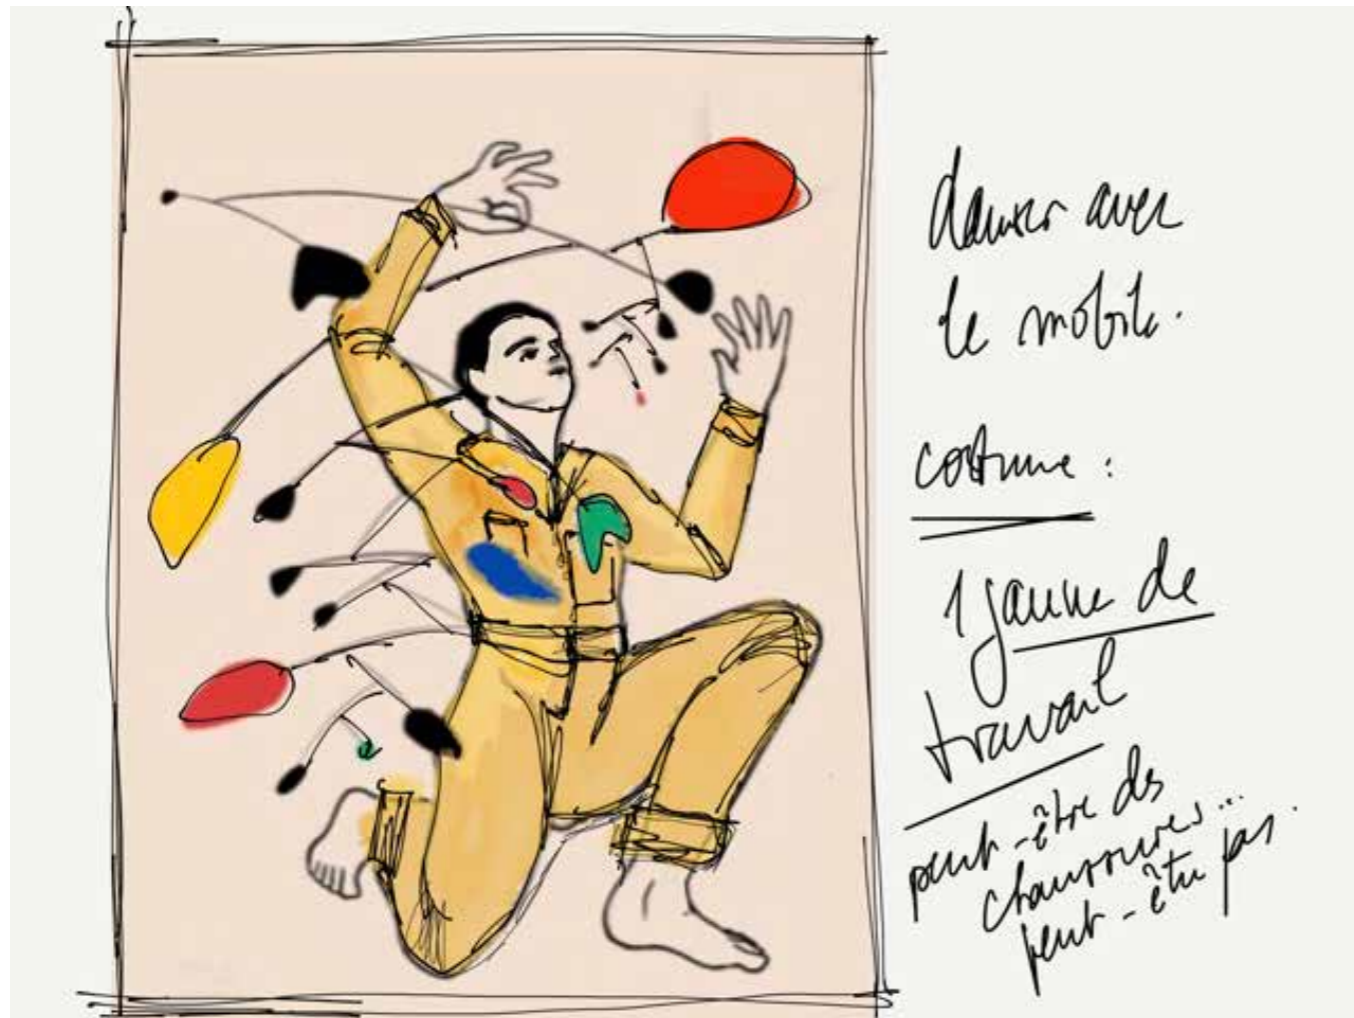 danser avec
le mobile.
costume :
1 jaune de
travail
peut-être des
chaussures...
peut-être pas.